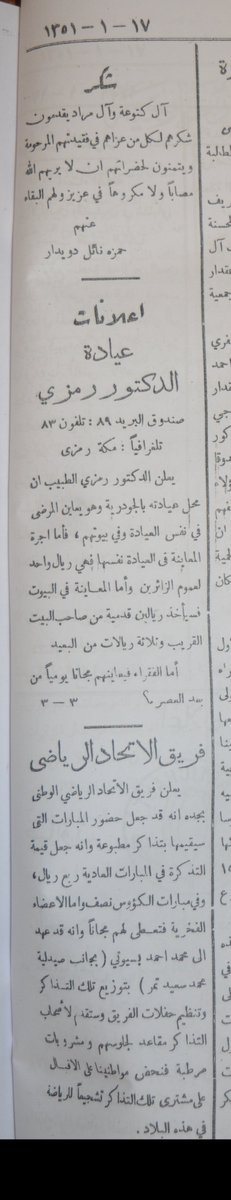 ١٧-١-١٣٥١
شكر
آل كنوعة وآل مراد يقدمون
شكرهم لكل من عزاهم في فقيدتهم المرحومة
ويتمنون لحضراتهم ان لا يريهم الله
مصاباً ولا مكروهاً في عزيز ولهم البقاء
عنهم
حمزه نائل دويدار
اعلانات
عيادة
الدكتور رمزي
صندوق البريد ٨٩ : تلفون ٨٣
تلغرافياً : مكة رمزى
يعلن الدكتور رمزي الطبيب ان
محل عيادته بالجودرية وهو يعاين المرضى
في نفس العيادة وفي بيوتهم ، فأما اجرة
المعاينة فى العيادة نفسها فهي ريال واحد
لعموم الزائرين وأما المعاينة في البيوت
فسيأخذ ريالين قدمية من صاحب البيت
القريب وثلاثة ريالات من البعيد
أما الفقراء فيعاينهم مجانا يومياً من
بعد العصر ؟ ٣ - ٣
فريق الاتحاد الرياضى
يعلن فريق الاتحاد الرياضي الوطنى
بجده انه قد جعل حضور المبارات التى
سيقيمها بتذاكر مطبوعة وانه جعل قيمة
التذكرة في المبارات العادية ربع ريال،
وفي مبارات الكؤوس نصف واما الاعضاء
الفخرية فتعطى لهم مجاناً وانه قد عهد
الى محمد احمد بسيونى ( بجانب صيدلية
محمد سعيد تمر ) بتوزيع تلك التذاكر
وتنظيم حفلات الفريق وستقدم لأصحاب
التذاكر مقاعد لجلوسهم ومشروبات
مرطبة فنحض مواطنينا على الاقبال
على مشترى تلك التذاكر تشجيعاً للرياضة
في هذه البلاد .